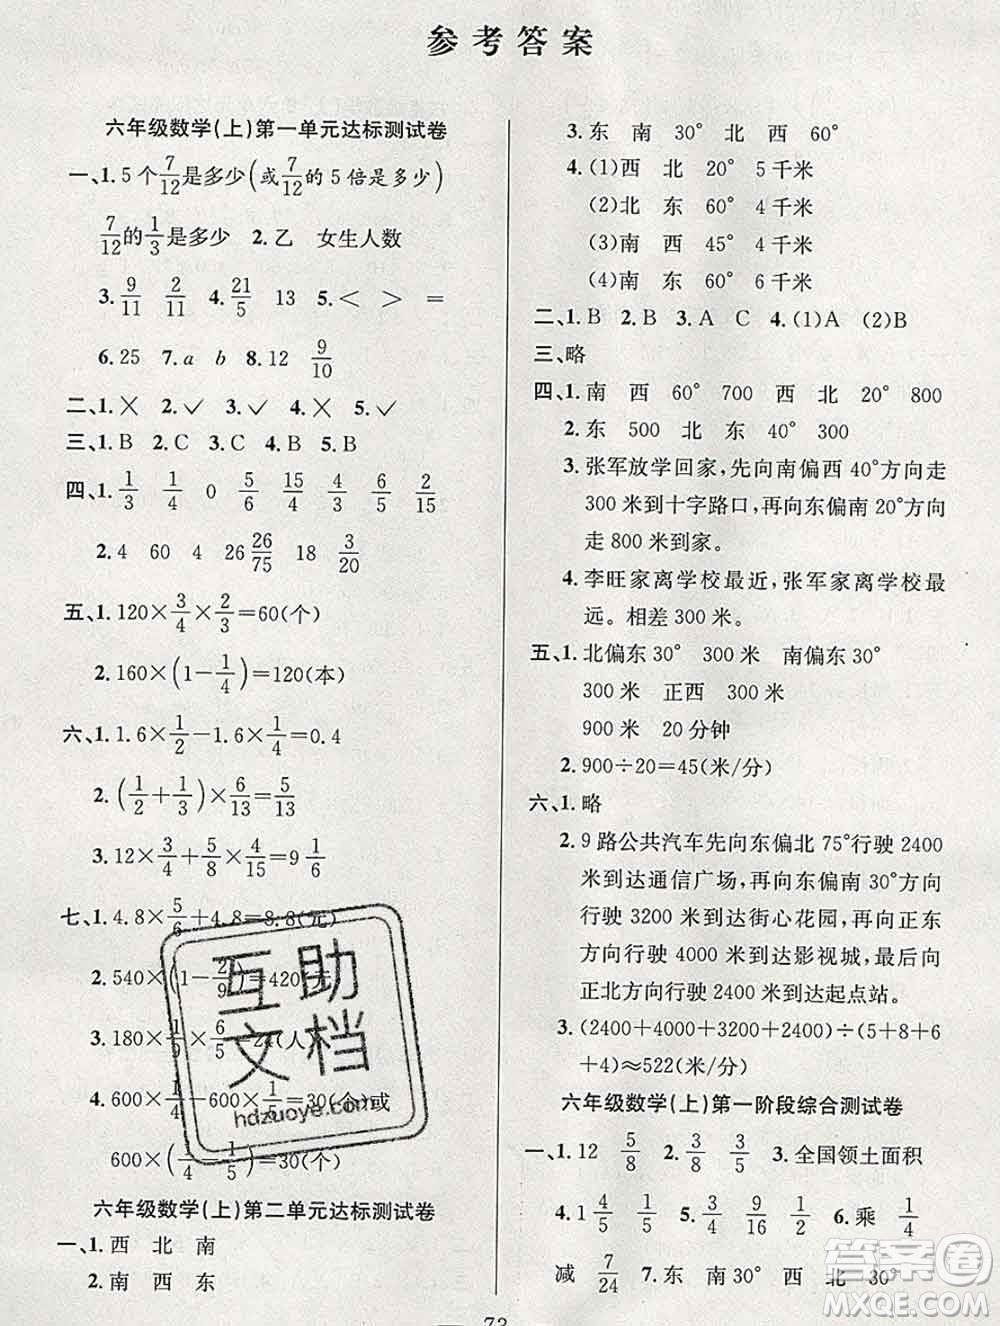 参考答案
六年级数学(上)第一单元达标测试卷
一、1. 5个7/12是多少(或7/12的5倍是多少)
7/12的1/3是多少 2. 乙 女生人数
3. 9/11 2/11 4. 21/5 13 5. < > =
6. 25 7. a b 8. 12 9/10
二、1. × 2. ✓ 3. ✓ 4. × 5. ✓
三、1. B 2. C 3. C 4. B 5. B
四、1. 1/3 1/4 0 5/6 15/4 4/15 6/5 2/15
2. 4 60 4 26 26/75 18 3/20
五、1. 120×3/4×2/3=60(个)
2. 160×(1-1/4)=120(本)
六、1. 1.6×1/2-1.6×1/4=0.4
2. (1/2+1/3)×6/13=5/13
3. 12×3/4+5/8×4/15=9 1/6
七、1. 4.8×5/6+4.8=8.8(元)
2. 540×(1-2/9)=420(元)
3. 180×1/9×6/5=24(人)
4. 600×1/4-600×1/5=30(个)或
600×(1/4-1/5)=30(个)
六年级数学(上)第二单元达标测试卷
一、1. 西 北 南
2. 南 西 东
3. 东 南 30° 北 西 60°
4. (1)西 北 20° 5千米
(2)北 东 60° 4千米
(3)南 西 45° 4千米
(4)南 东 60° 6千米
二、1. B 2. B 3. A C 4. (1)A (2)B
三、略
四、1. 南 西 60° 700 西 北 20° 800
2. 东 500 北 东 40° 300
3. 张军放学回家，先向南偏西40°方向走
300米到十字路口，再向东偏南20°方向
走800米到家。
4. 李旺家离学校最近，张军家离学校最
远。相差300米。
五、1. 北偏东30° 300米 南偏东30°
300米 正西 300米
900米 20分钟
2. 900÷20=45(米/分)
六、1. 略
2. 9路公共汽车先向东偏北75°行驶2400
米到达通信广场，再向东偏南30°方向
行驶3200米到达街心花园，再向正东
方向行驶4000米到达影视城，最后向
正北方向行驶2400米到达起点站。
3. (2400+4000+3200+2400)÷(5+8+6
+4)≈522(米/分)
六年级数学(上)第一阶段综合测试卷
一、1. 12 5/8 2. 3/8 5/8 3. 全国领土面积
4. 1 4/5 4/5 5. 3/4 9/16 6. 乘 1/4
减 7/24 7. 东 南 30° 西 北 30°
73
互助
文档
hdzuoye.com
答案圈
MXQE.COM